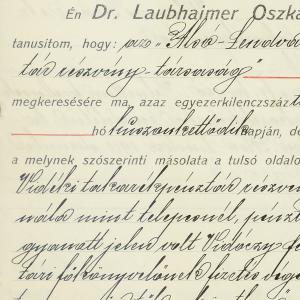 Én Dr. Laubhajmer Oszká
tanusítom, hogy: az "Alsó-Lendva
tár részvény-társaság"
megkeresésére ma, azaz egyezerkilenczszáz
hó huszonkettődik napján, de
a melynek szószerinti másolata a tulsó oldalo
Vidéki takarékpénztár részvén
nála mint telepesnél, pénzt
jelen volt Vidóczy
tári főkönyvelőnek fizetés végett